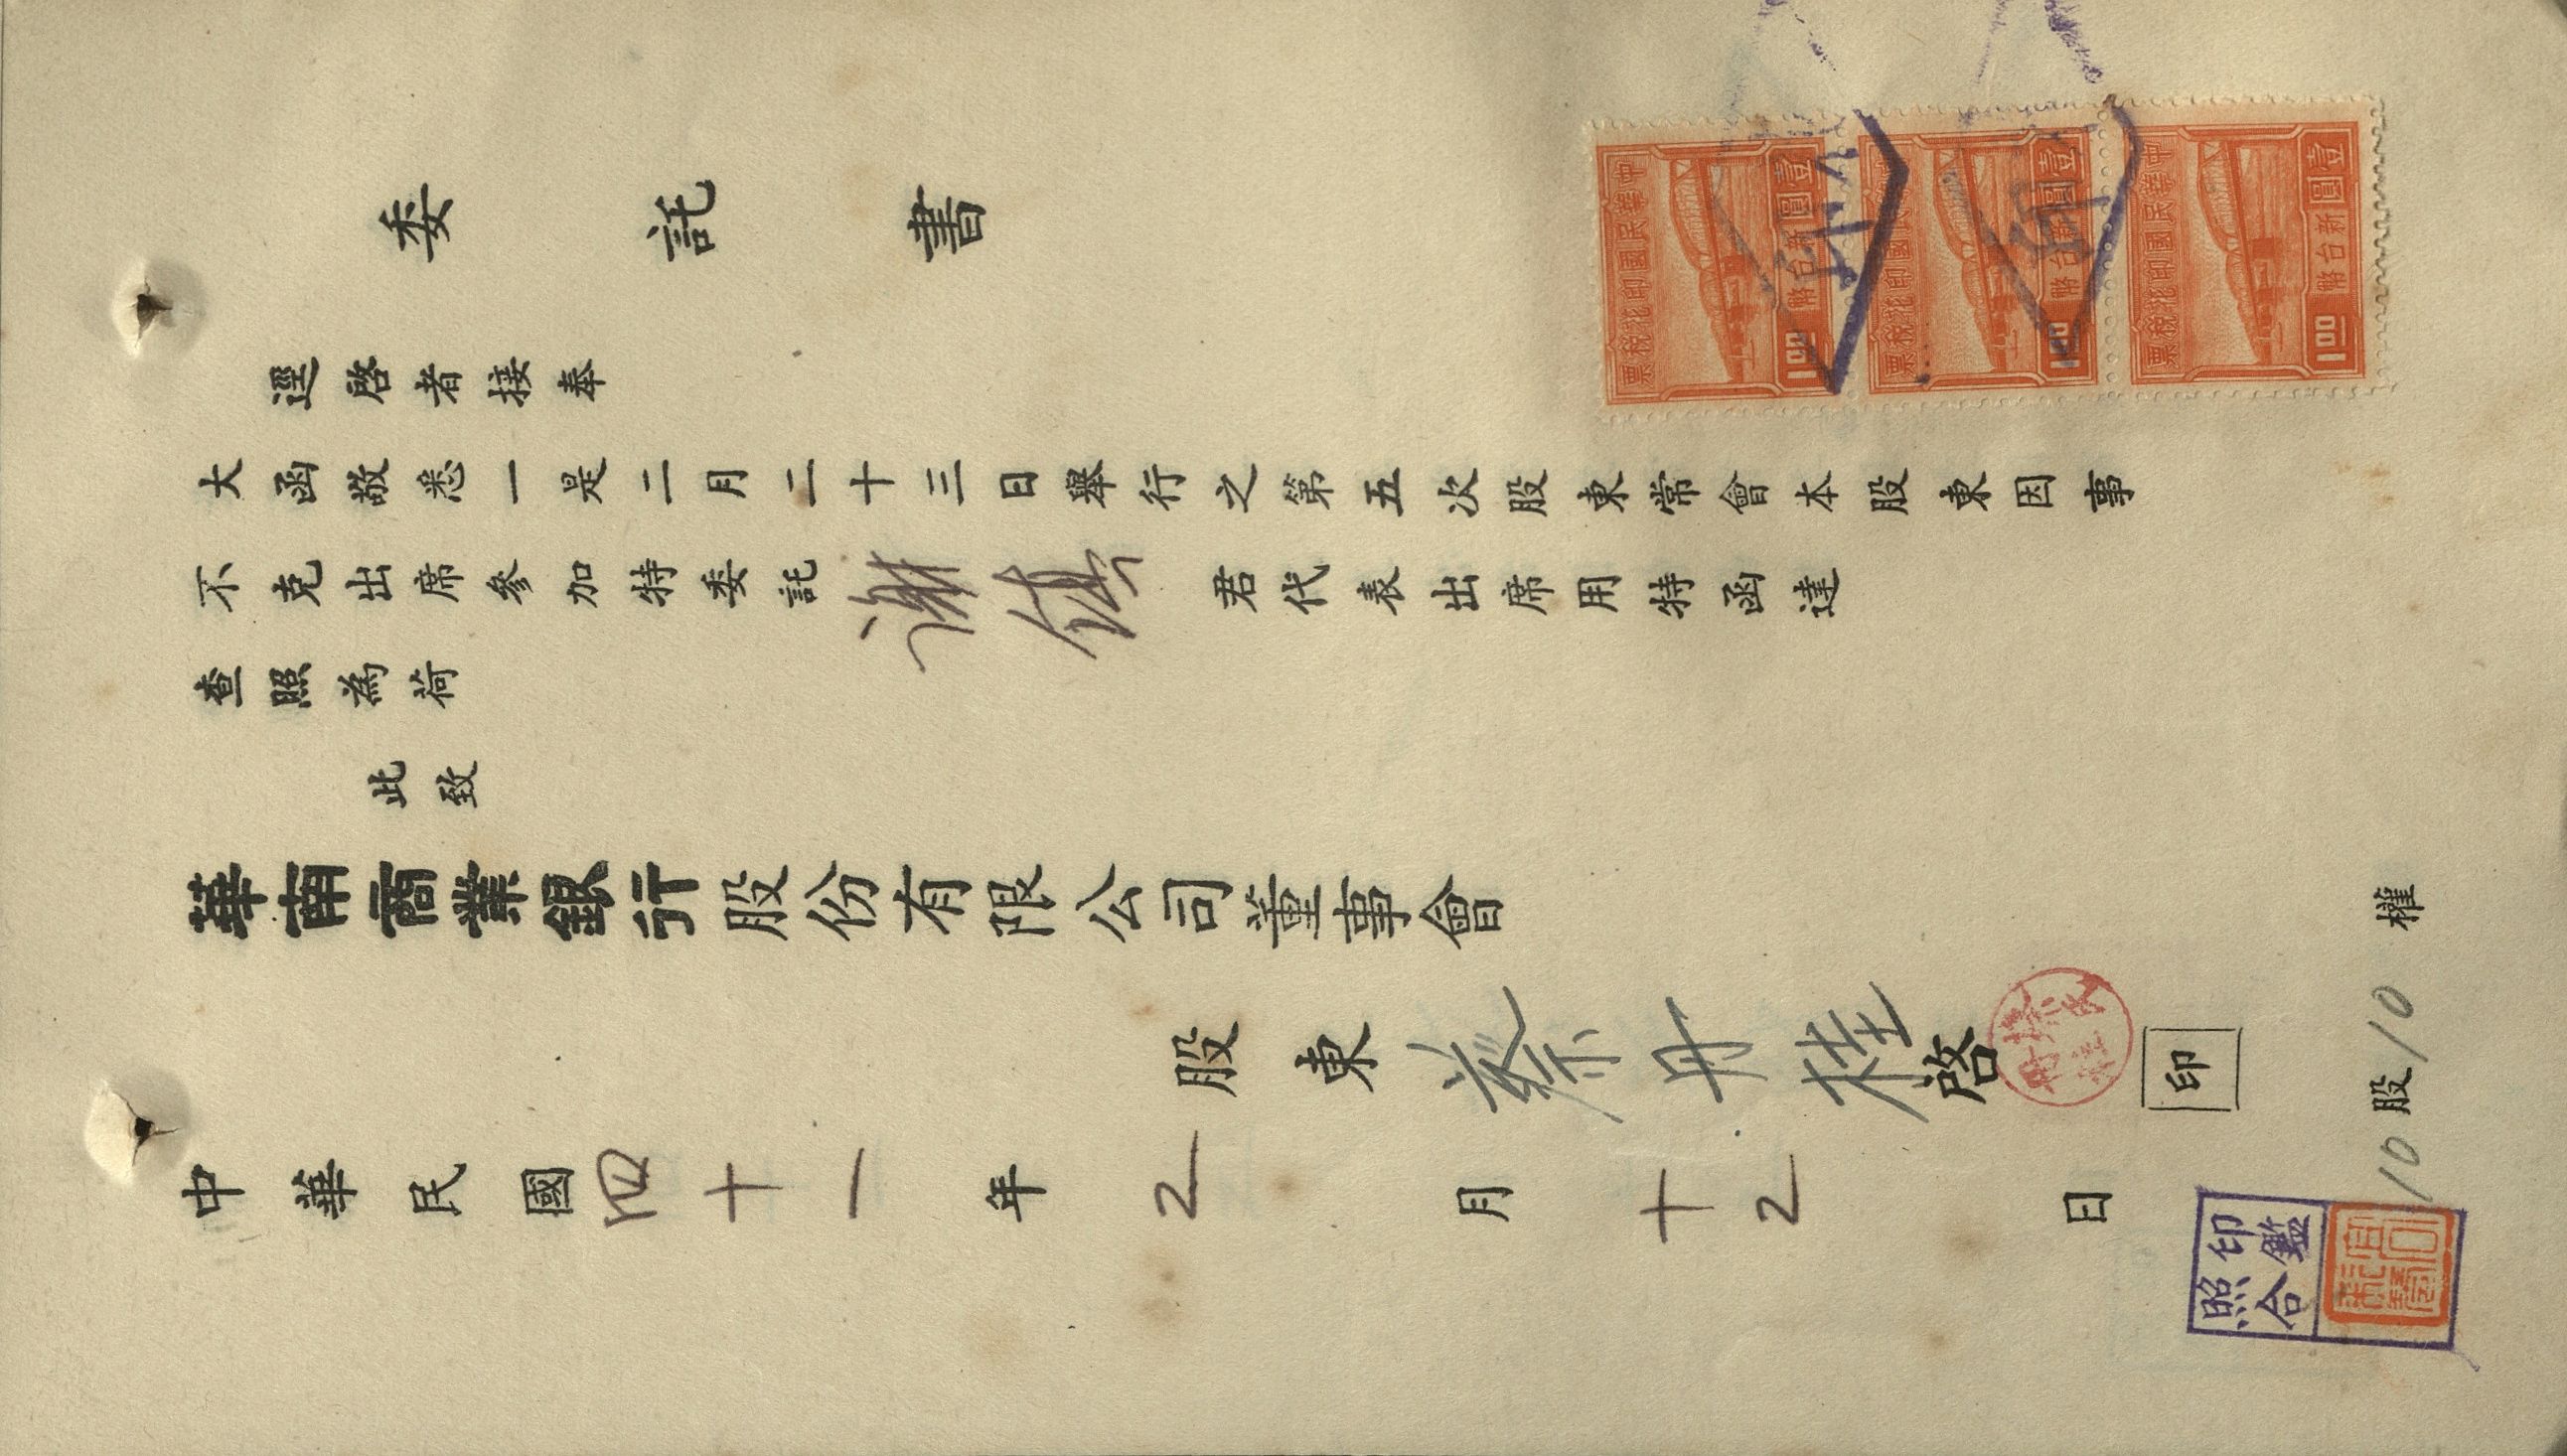 委託書
逕啓者接奉
大函敬悉一是二月二十三日舉行之第五次股東常會本股東因事
不克出席參加特委託謝 君代表出席用特函達
查照為荷
此致
華南商業銀行股份有限公司董事會
股東蔡丹桂啓 印
中華民國四十一年2月十2日
10股10權
中華民國印花稅票
壹圓新台幣
1.00
中華民國印花稅票
壹圓新台幣
1.00
中華民國印花稅票
壹圓新台幣
1.00
印鑑
照合